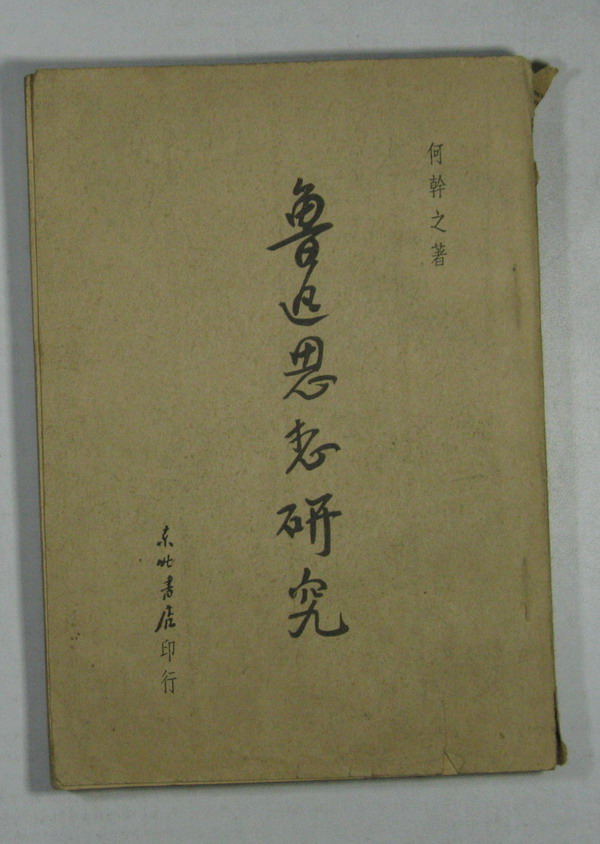 何幹之著
魯迅思想研究
东北书店印行